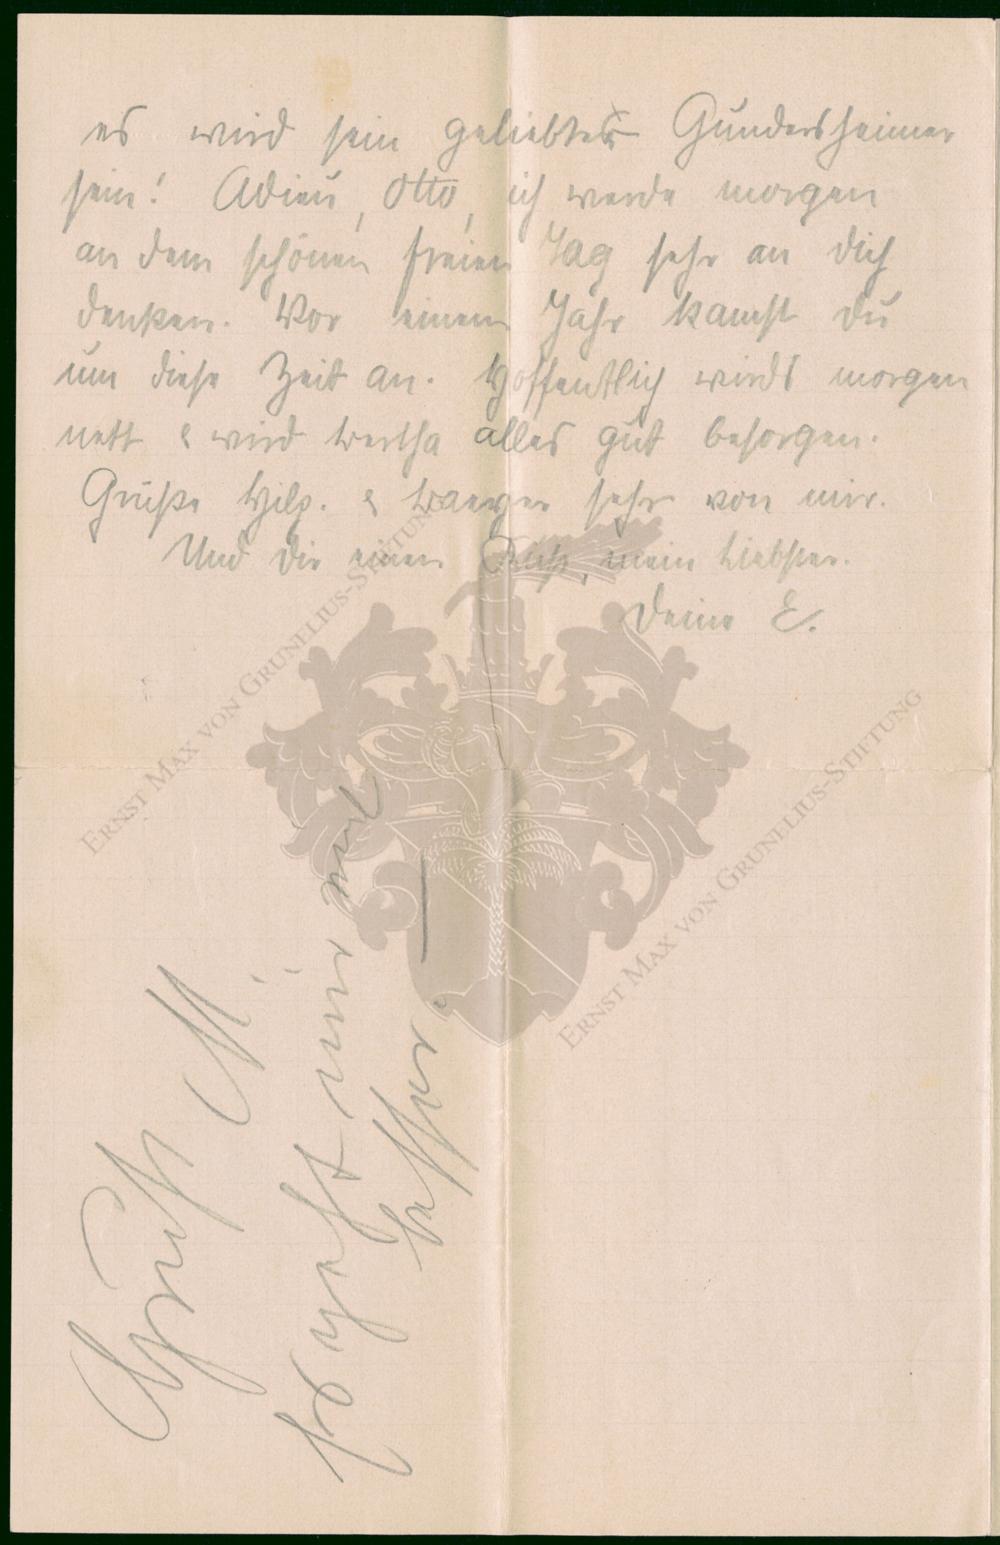 es wird sein geliebter Gundersheimer
sein! Adieu, Otto, ich werde morgen
an dem schönen freien Tag sehr an dich
denken. Vor einem Jahr kamst du
um diese Zeit an. Hoffentlich wirds morgen
nett & wird Bertha alles gut besorgen.
Grüße Hilp. & sehr von mir.
Und dir einen Kuß, mein Liebster.
Deine E.
Gruß M.
es geht mir viel
besser.
ERNST MAX VON GRUNELIUS-STIFTUNG
ERNST MAX VON GRUNELIUS-STIFTUNG